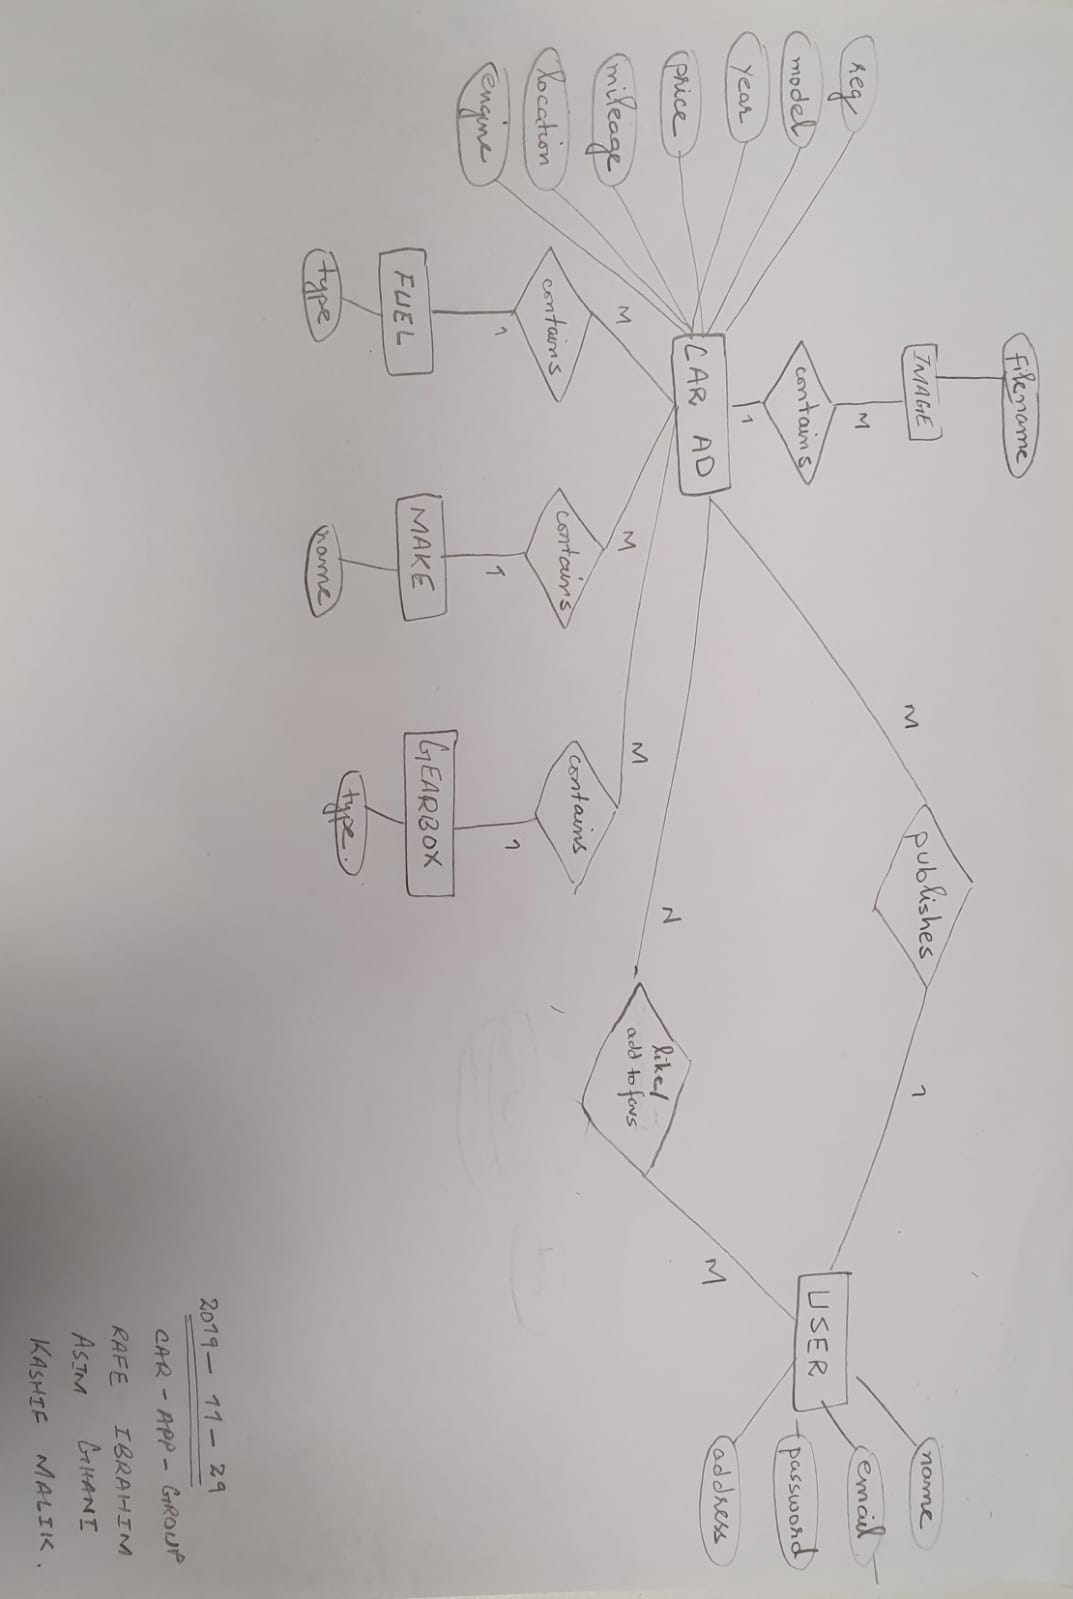 filename
IMAGE
M
contains
1
reg
model
year
price
mileage
location
engine
CAR AD
M
publishes
1
name
email
password
address
USER
N
like/
add to favs
M
M
contains
1
FUEL
type
M
contains
1
MAKE
name
M
contains
1
GEARBOX
type.
2019-11-29
CAR-APP-GROUP
RAFE IBRAHIM
ASIM GHANI
KASHIF MALIK.